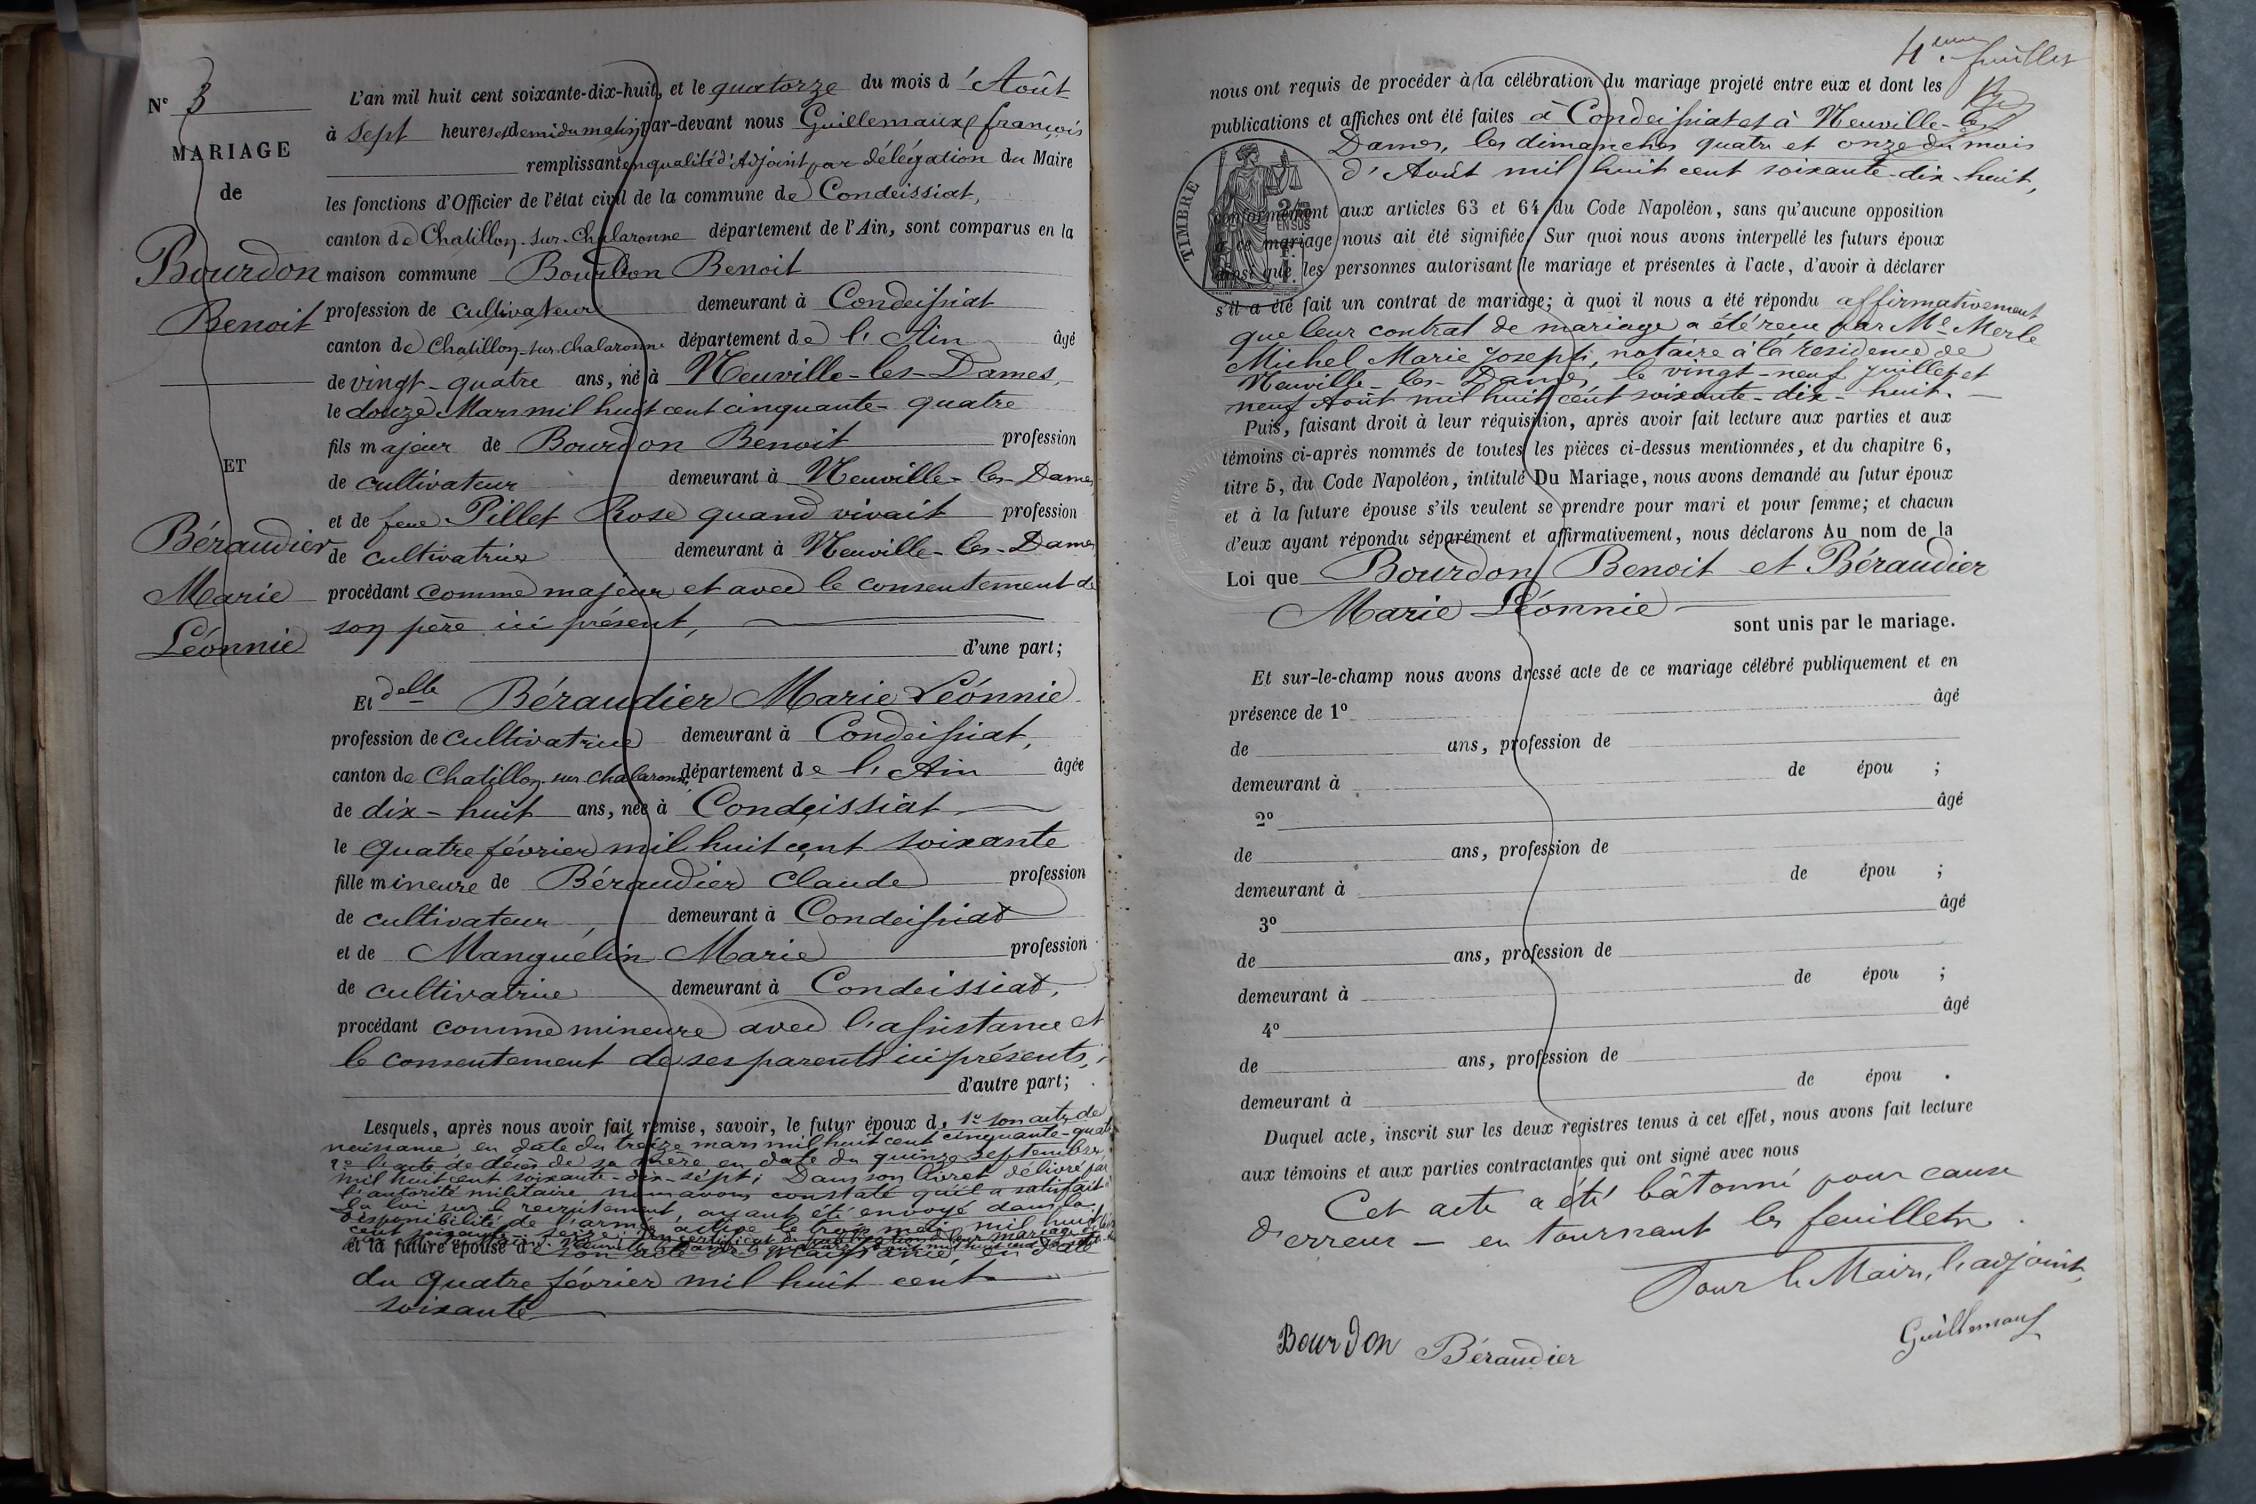 N° 3
MARIAGE
de
Bourdon
Benoit
ET
Béraudier
Marie
Léonnie
L'an mil huit cent soixante-dix-huit, et le quatorze du mois d'Août
à sept heures et demi du matin par-devant nous Guillemaux françois
remplissant en qualité d'Adjoint par délégation du Maire
les fonctions d'Officier de l'état civil de la commune de Condeissiat,
canton de Chatillon-sur-Chalaronne département de l'Ain, sont comparus en la
maison commune Bourdon Benoit
profession de cultivateur demeurant à Condeissiat
canton de Chatillon-sur-Chalaronne département de l'Ain âgé
de vingt-quatre ans, né à Neuville-les-Dames,
le douze Mars mil huit cent cinquante-quatre
fils majeur de Bourdon Benoit profession
de cultivateur demeurant à Neuville-les-Dames
et de feue Pillet Rose quand vivait profession
de cultivatrice demeurant à Neuville-les-Dames
procédant comme majeur et avec le consentement de
son père ici présent,
d'une part;
Et delle Béraudier Marie Léonnie
profession de cultivatrice demeurant à Condeissiat,
canton de Chatillon-sur-Chalaronne département de l'Ain âgée
de dix-huit ans, née à Condeissiat
le quatre février mil huit cent soixante
fille mineure de Béraudier Claude profession
de cultivateur, demeurant à Condeissiat
et de Manguelin Marie profession
de cultivatrice demeurant à Condeissiat,
procédant comme mineure avec l'assistance et
le consentement de ses parents ici présents,
d'autre part;
Lesquels, après nous avoir fait remise, savoir, le futur époux de 1° son acte de
naissance en date du treize mars mil huit cent cinquante-quatre
2° l'acte de décès de sa mère en date du quinze septembre
mil huit cent soixante-dix-sept; Dans son livret délivré par
l'autorité militaire nous avons constaté qu'il a satisfait à
la loi sur le recrutement, ayant été envoyé dans la
disponibilité de l'armée active le trois mai mil huit
cent soixante-seize; un certificat de publication de leur mariage
et la future épouse de son acte de naissance, en date
du quatre février mil huit cent
soixante
4eme feuillet
nous ont requis de procéder à la célébration du mariage projeté entre eux et dont les
publications et affiches ont été faites à Condeissiat et à Neuville-les
Dames, les dimanches quatre et onze du mois
d'Août mil huit cent soixante-dix-huit,
TIMBRE
2/10
EN SUS
conformément aux articles 63 et 64 du Code Napoléon, sans qu'aucune opposition
à ce mariage nous ait été signifiée. Sur quoi nous avons interpellé les futurs époux
ainsi que les personnes autorisant le mariage et présentes à l'acte, d'avoir à déclarer
s'il a été fait un contrat de mariage; à quoi il nous a été répondu affirmativement
que leur contrat de mariage a été reçu par Me Merle
Michel Marie Joseph, notaire à la résidence de
Neuville-les-Dames, le vingt-neuf juillet et
neuf Août mil huit cent soixante-dix-huit.
Puis, faisant droit à leur réquisition, après avoir fait lecture aux parties et aux
témoins ci-après nommés de toutes les pièces ci-dessus mentionnées, et du chapitre 6,
titre 5, du Code Napoléon, intitulé Du Mariage, nous avons demandé au futur époux
et à la future épouse s'ils veulent se prendre pour mari et pour femme; et chacun
d'eux ayant répondu séparément et affirmativement, nous déclarons Au nom de la
Loi que Bourdon Benoit et Béraudier
Marie Léonnie
sont unis par le mariage.
Et sur-le-champ nous avons dressé acte de ce mariage célébré publiquement et en
présence de 1° âgé
de ans, profession de
demeurant à de épou ;
2° âgé
de ans, profession de
demeurant à de épou ;
3° âgé
de ans, profession de
demeurant à de épou ;
4° âgé
de ans, profession de
demeurant à de épou .
Duquel acte, inscrit sur les deux registres tenus à cet effet, nous avons fait lecture
aux témoins et aux parties contractantes qui ont signé avec nous
Cet acte a été bâtonné pour cause
d'erreur – en tournant les feuillets.
Pour le Maire, l'adjoint,
Bourdon Béraudier Guillemaux